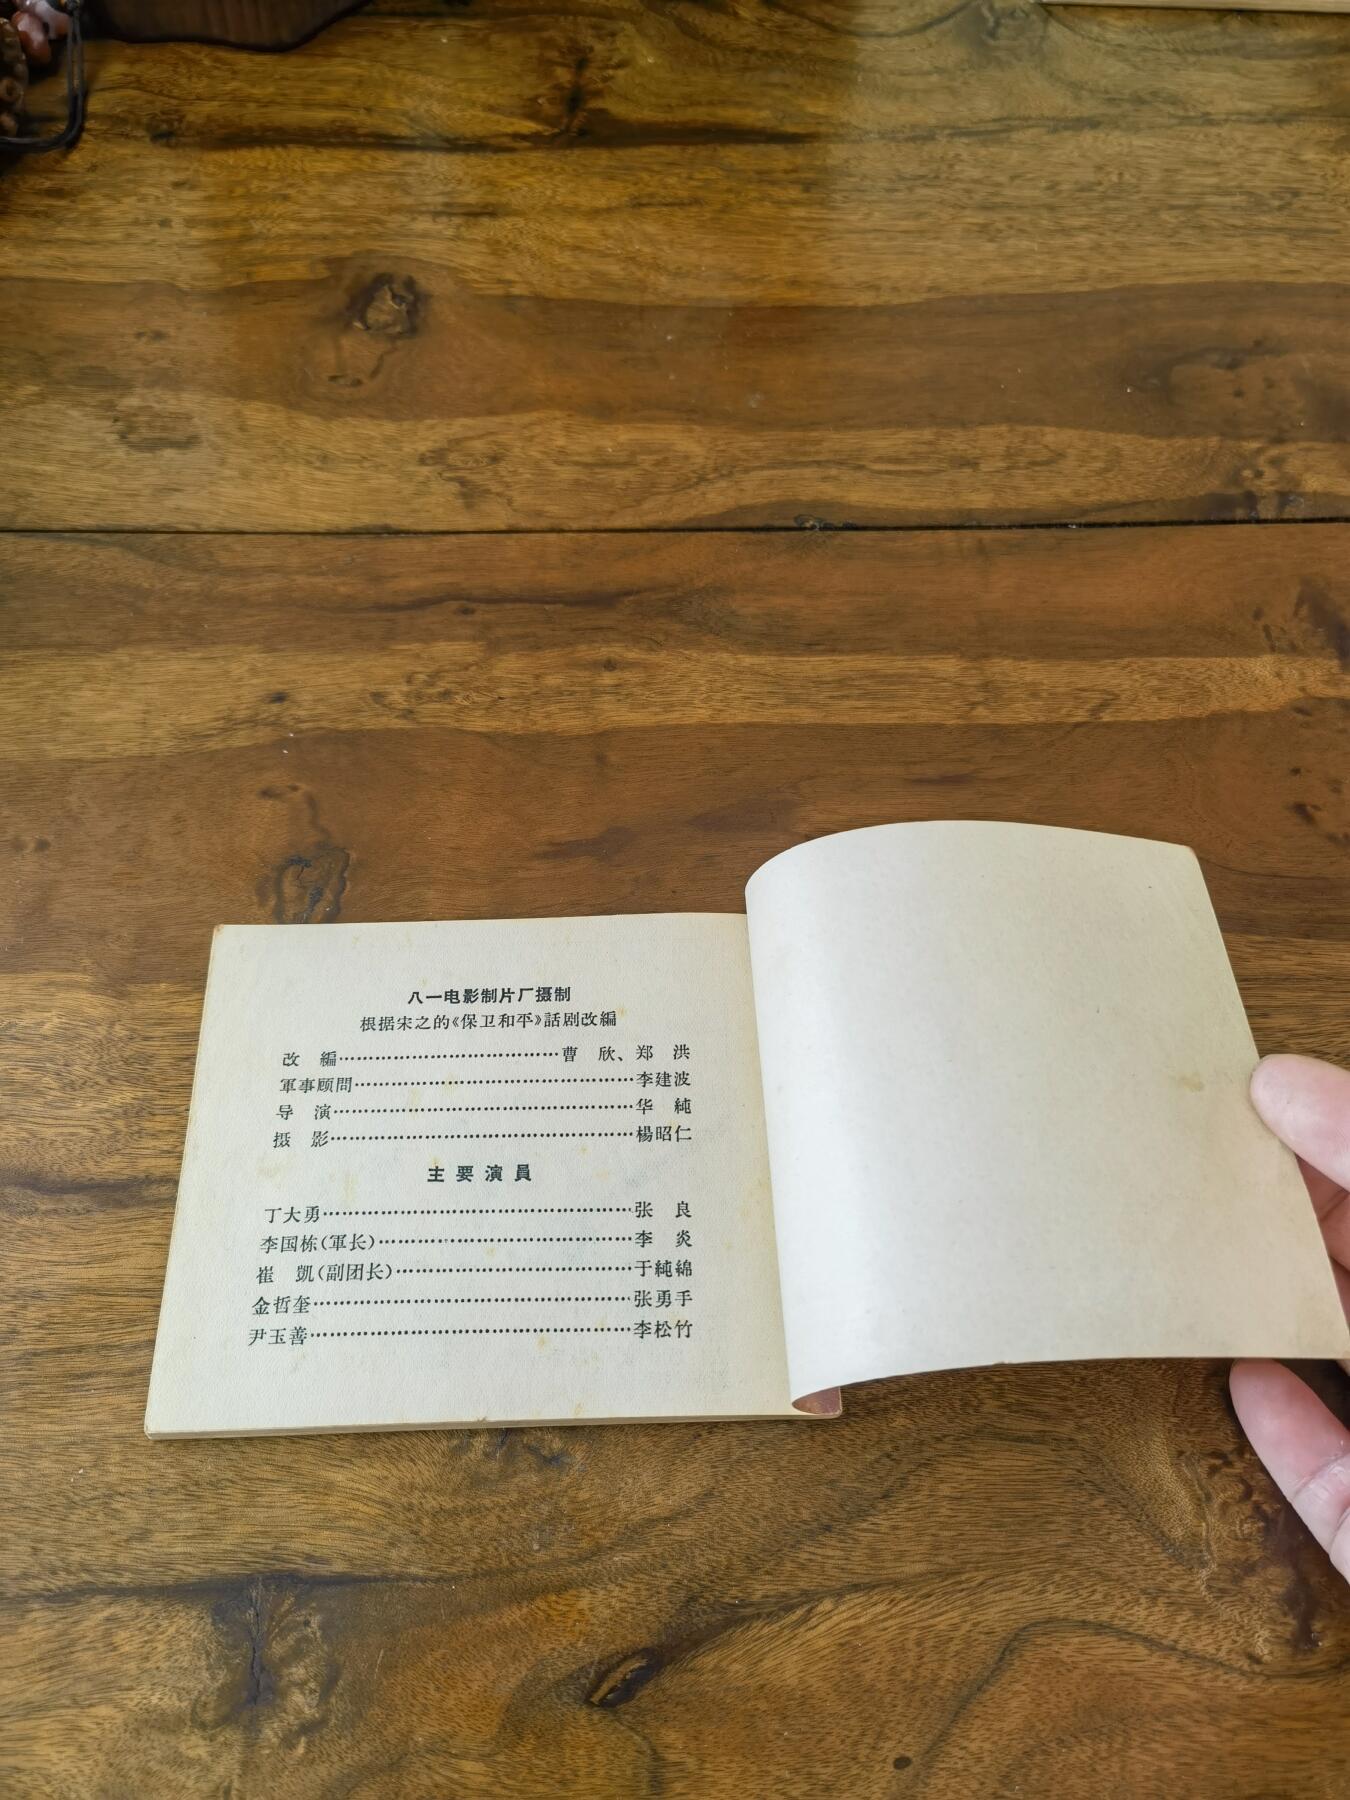 八一电影制片厂摄制
根据宋之的《保卫和平》話剧改編
改　編……………………………曹　欣、郑　洪
軍事顾問……………………………李建波
导　演……………………………华　純
摄　影……………………………楊昭仁
主要演員
丁大勇……………………………张　良
李国栋(軍长)……………………………李　炎
崔　凱(副团长)……………………………于純綿
金哲奎……………………………张勇手
尹玉善……………………………李松竹